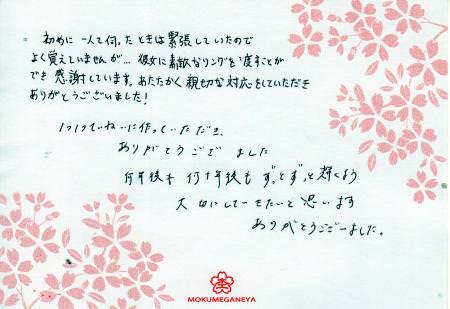 初めに一人で伺ったときは緊張していたので
よく覚えていませんが… 彼女に素敵なリングを渡すことが
でき感謝しています。あたたかく親切な対応をしていただき
ありがとうございました!
1つ1つていねいに作っていただき、
ありがとうございました
何年後も何十年後もずっとずっと輝くよう
大切にしていきたいと思います
ありがとうございました。
MOKUMEGANEYA